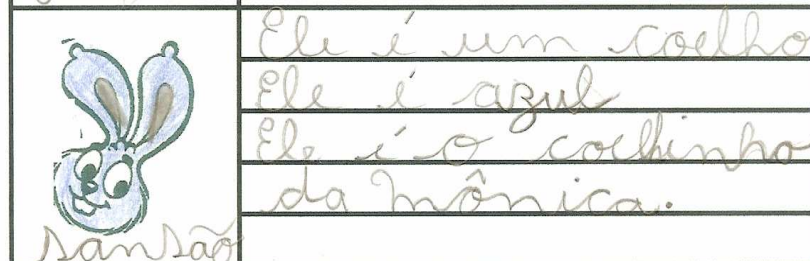 Ele é um coelho
Ele é azul
Ele é o coelhinho
da Mônica.
Sansão